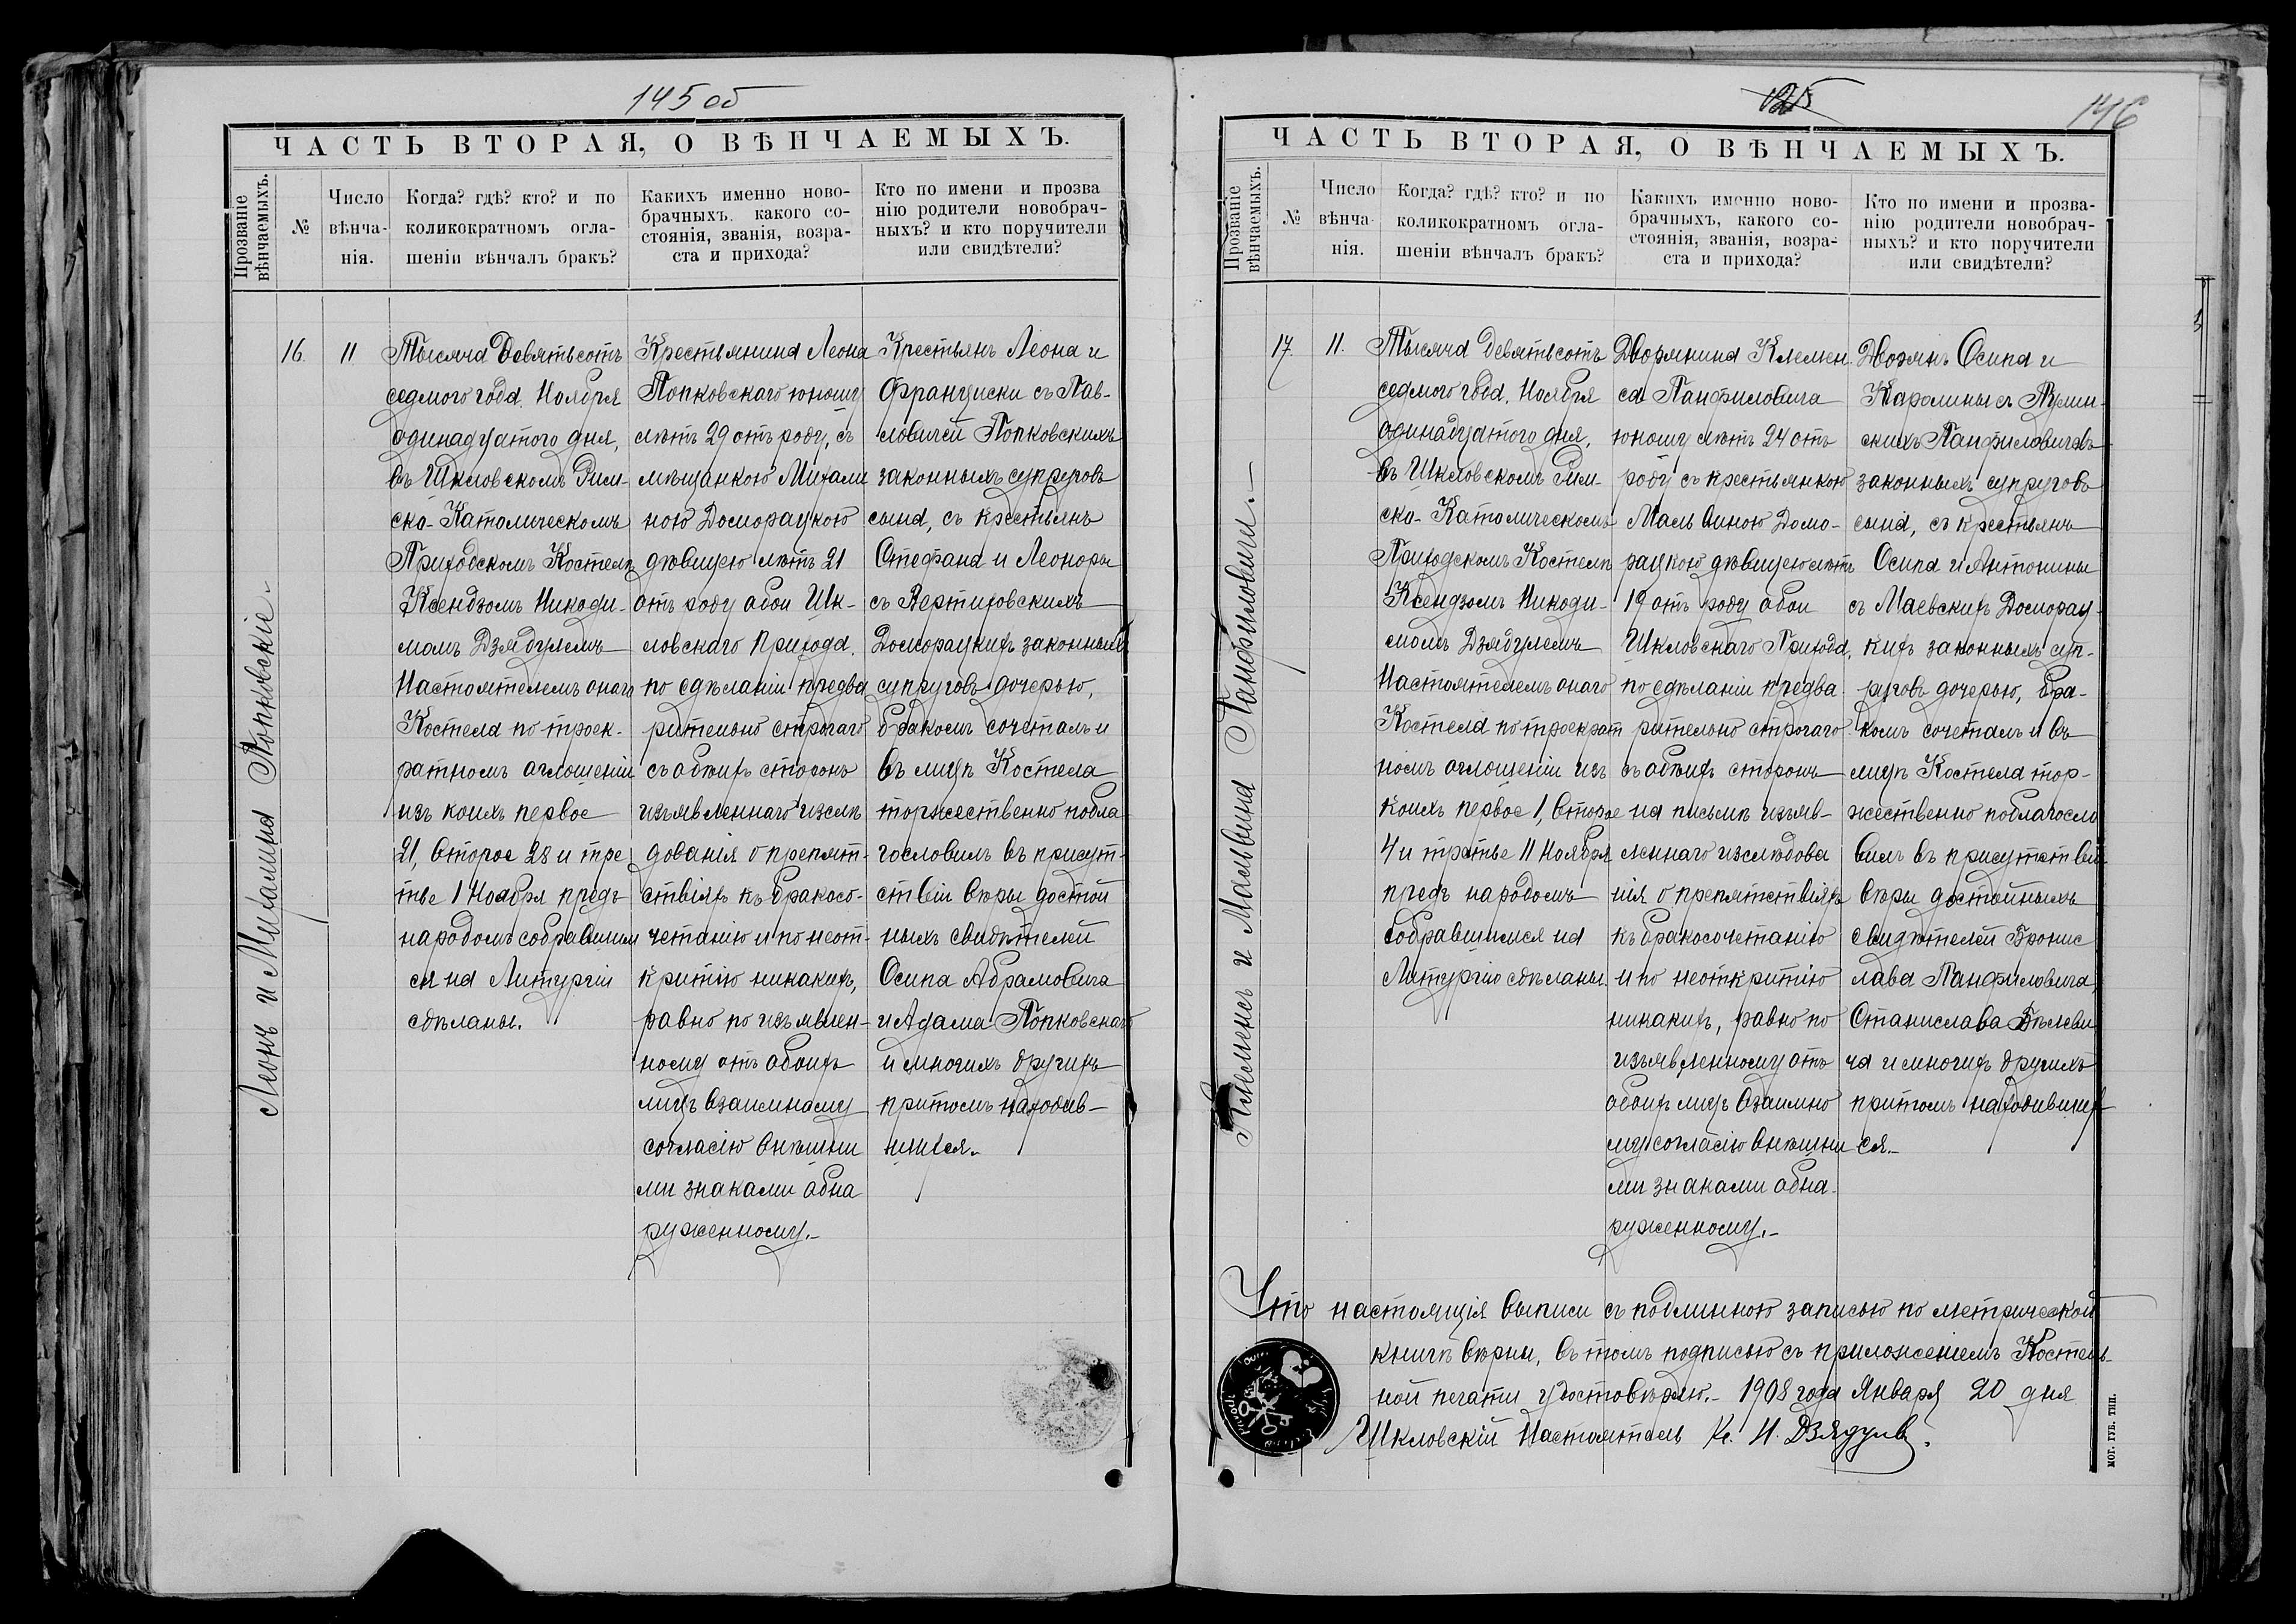 145 об
ЧАСТЬ ВТОРАЯ, О ВѢНЧАЕМЫХЪ.
Прозваніе
вѣнчаемыхъ.
№
Число
вѣнча-
нія.
Когда? гдѣ? кто? и по
коликократномъ огла-
шеніи вѣнчалъ бракъ?
Какихъ именно ново-
брачныхъ. какого со-
стоянія, званія, возра-
ста и прихода?
Кто по имени и прозва
нію родители новобрач-
ныхъ? и кто поручители
или свидѣтели?
Леонъ и Михалина Попковскіе.
16.
11
Тысяча Девятьсотъ
седмого года. Ноября
одинадцатого дня,
въ Шкловскомъ Рим-
ско-Католическомъ
Приходскомъ Костелѣ
Ксендзомъ Никоди-
момъ Дзядулемъ
Настоятелемъ онаго
Костела по троек-
ратномъ оглошеніи
изъ коихъ первое
21, Второе 28 и тре
тье 1 Ноября предъ
народомъ собравшим
ся на Литургіи
сдѣланы.
Крестьянина Леона
Попковскаго юношу
лѣтъ 29 отъ роду, съ
мѣщанкою Михали
ною Доморацкою
дѣвицею лѣтъ 21
отъ роду обои Шк-
ловскаго Прихода.
по сдѣланіи предва
рительно строгаго
съ обѣихъ сторонъ
изъявленнаго изслѣ
дованія о препят-
ствіяхъ къ бракосо-
четанію и по неот-
критію никакихъ,
равно по изъявлен-
ному отъ обоихъ
лицъ взаимному
согласію внѣшни
ми знаками обна
руженному.-
Крестьянъ Леона и
Франциски съ Пав-
ловичей Попковскихъ
законныхъ супруговъ
сына, съ крестьянъ
Стефана и Леоноры
съ Вертиховскихъ
Доморацкихъ законныхъ
супруговъ дочерью,
бракомъ сочеталъ и
въ лицѣ Костела
торжественно побла
гословилъ въ присут-
ствіи вѣры достой
ныхъ свидѣтелей
Осипа Абрамовича
и Адама Попковскаго
и многихъ другихъ
притомъ находив-
шихся.
125
146
ЧАСТЬ ВТОРАЯ, О ВѢНЧАЕМЫХЪ.
Прозваніе
вѣнчаемыхъ.
№
Число
вѣнча-
нія.
Когда? гдѣ? кто? и по
коликократномъ огла-
шеніи вѣнчалъ бракъ?
Какихъ именно ново-
брачныхъ, какого со-
стоянія, званія, возра-
ста и прихода?
Кто по имени и прозва-
нію родители новобрач-
ныхъ? и кто поручители
или свидѣтели?
Клеменсъ и Мальвина Панфиловичи.-
17.
11.
Тысяча девятьсотъ
седмого года, Ноября
одинадцатого дня,
въ Шкловскомъ Рим-
ско-Католическомъ
Приходскомъ Костелѣ
Ксендзомъ Никоди-
момъ Дзядулемъ
Настоятелемъ онаго
Костела по троекрат
номъ оглошеніи изъ
коихъ первое 1, второе
4 и третье 11 Ноября
предъ народомъ
собравшимся на
Литургію сдѣланы.
Дворянина Клемен
са Панфиловича
юношу лѣтъ 24 отъ
роду съ крестьянкою
Мальвиною Домо-
рацкою дѣвицею лѣтъ
19 отъ роду обои
Шкловскаго Прихода,
по сдѣланіи предва
рительно строгаго
съ обѣихъ сторонъ
на письмѣ изъяв-
леннаго изслѣдова
нія о препятствіяхъ
къ бракосочетанію
и по неоткритію
никакихъ, равно по
изъявленному отъ
обоихъ лицъ взаимно
му согласію внѣшни
ми знаками обна-
руженному.-
Дворянъ Осипа и
Каролины съ
скихъ Панфиловичовъ
законныхъ супруговъ
сына, съ крестьянъ
Осипа и Антонины
съ Маевскихъ Доморац-
кихъ законныхъ суп-
руговъ дочерью, бра-
комъ сочеталъ и въ
лицѣ Костела тор-
жественно поблагосло
вилъ въ присутствіи
вѣры достойныхъ
свидѣтелей Бронис
лава Панфиловича,
Станислава Бѣлеви
ча и многихъ другихъ
притомъ находивших
ся.-
Что настоящія выписи съ подлинною записью по метрической
книгѣ вѣрны, въ томъ подписью съ приложеніемъ Костель-
ной печати удостовѣряю.- 1908 года Января 20 дня
Шкловскій Настоятель Кс. Н. Дзядуль.
МОГ. ГУБ. ТИП.